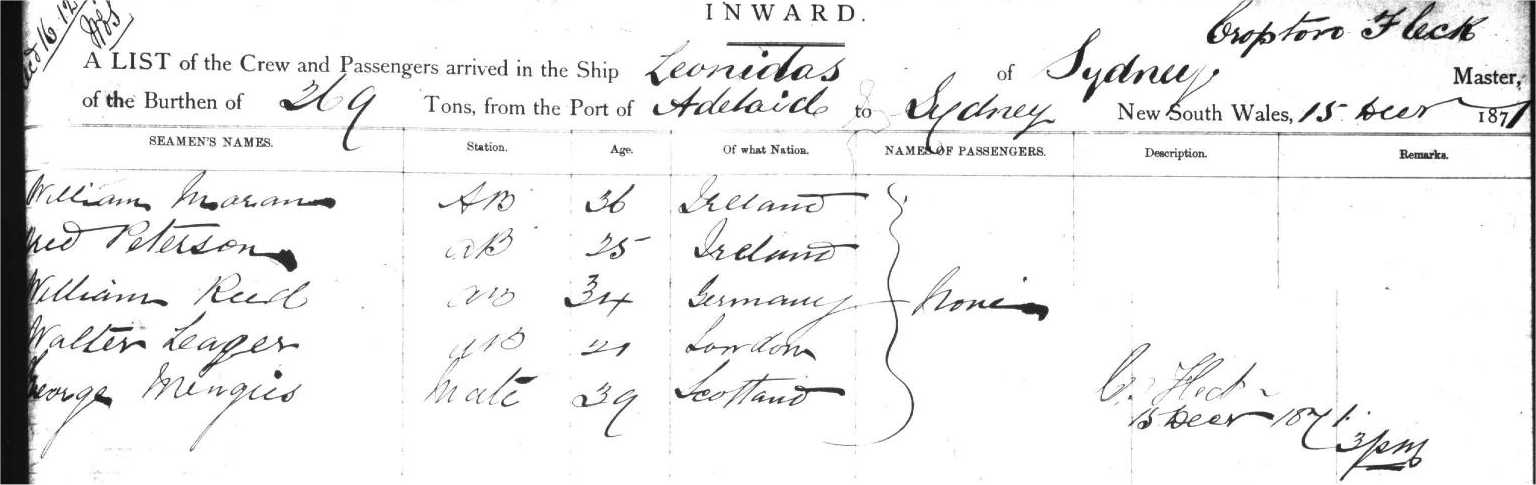 INWARD.
Cropton Fleck
A LIST of the Crew and Passengers arrived in the Ship Leonidas of Sydney Master,
of the Burthen of 269 Tons, from the Port of Adelaide to Sydney New South Wales, 15 Decr 1871
SEAMEN'S NAMES. Station. Age. Of what Nation. NAMES OF PASSENGERS. Description. Remarks.
William Moran AB 36 Ireland
Fred Peterson AB 25 Ireland
William Reed AB 34 Germany None
Walter Leager AB 21 London
George Mengies Mate 39 Scotland
C. Fleck
15 Decr 1871.
3pm